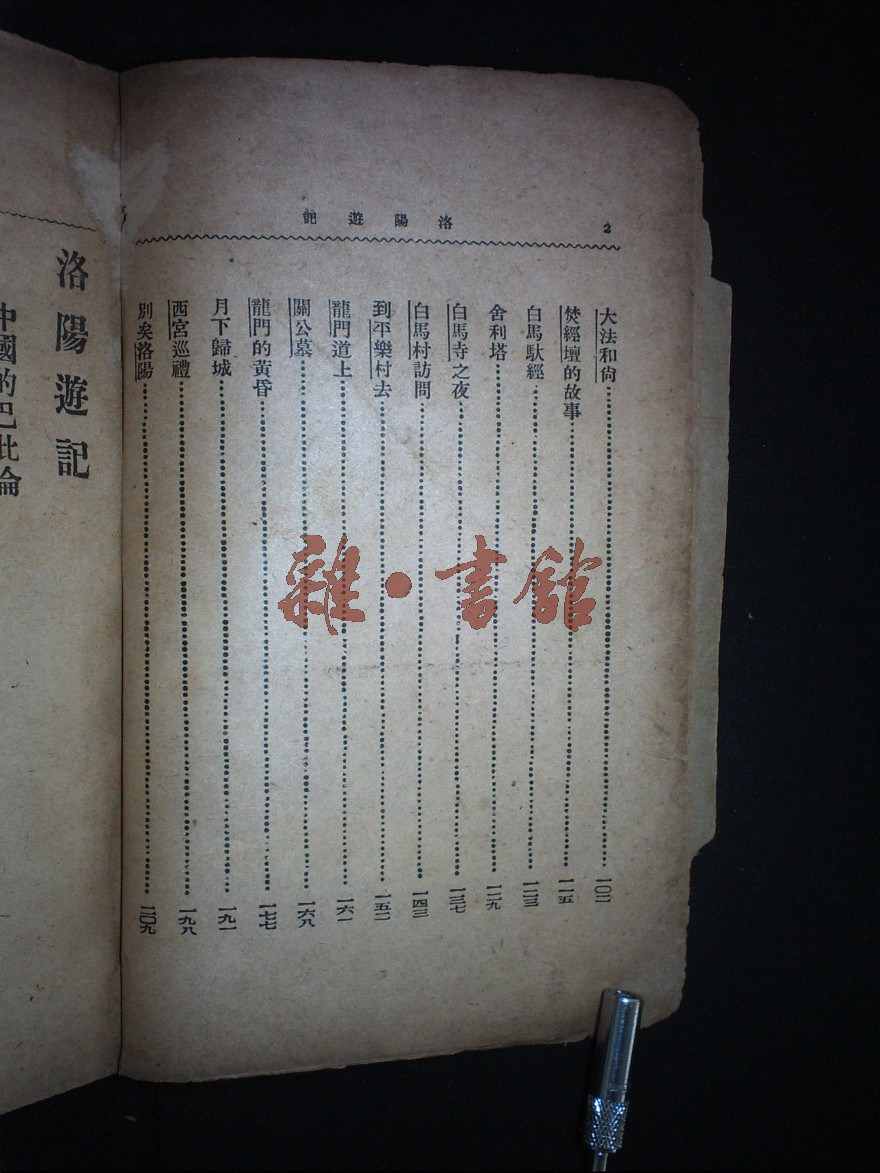 2
洛陽遊記
大法和尙……一〇二
焚經壇的故事……一一五
白馬馱經……一二三
舍利塔……一二九
白馬寺之夜……一三七
白馬村訪問……一四三
到平樂村去……一五二
龍門道上……一六一
關公墓……一六八
龍門的黃昏……一七七
月下歸城……一九一
西宮巡禮……一九八
別矣洛陽……二〇九
洛陽遊記
中國的巴比倫
雜·書館